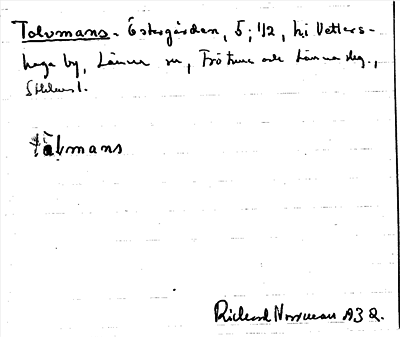 Tolvmans - Östergården, 5; 1/2, hi Vetlers-
haga by, Länna sn, Frötuna och Länna slg.,
Sthlms l.
tålmans
Richard Norrman A32.